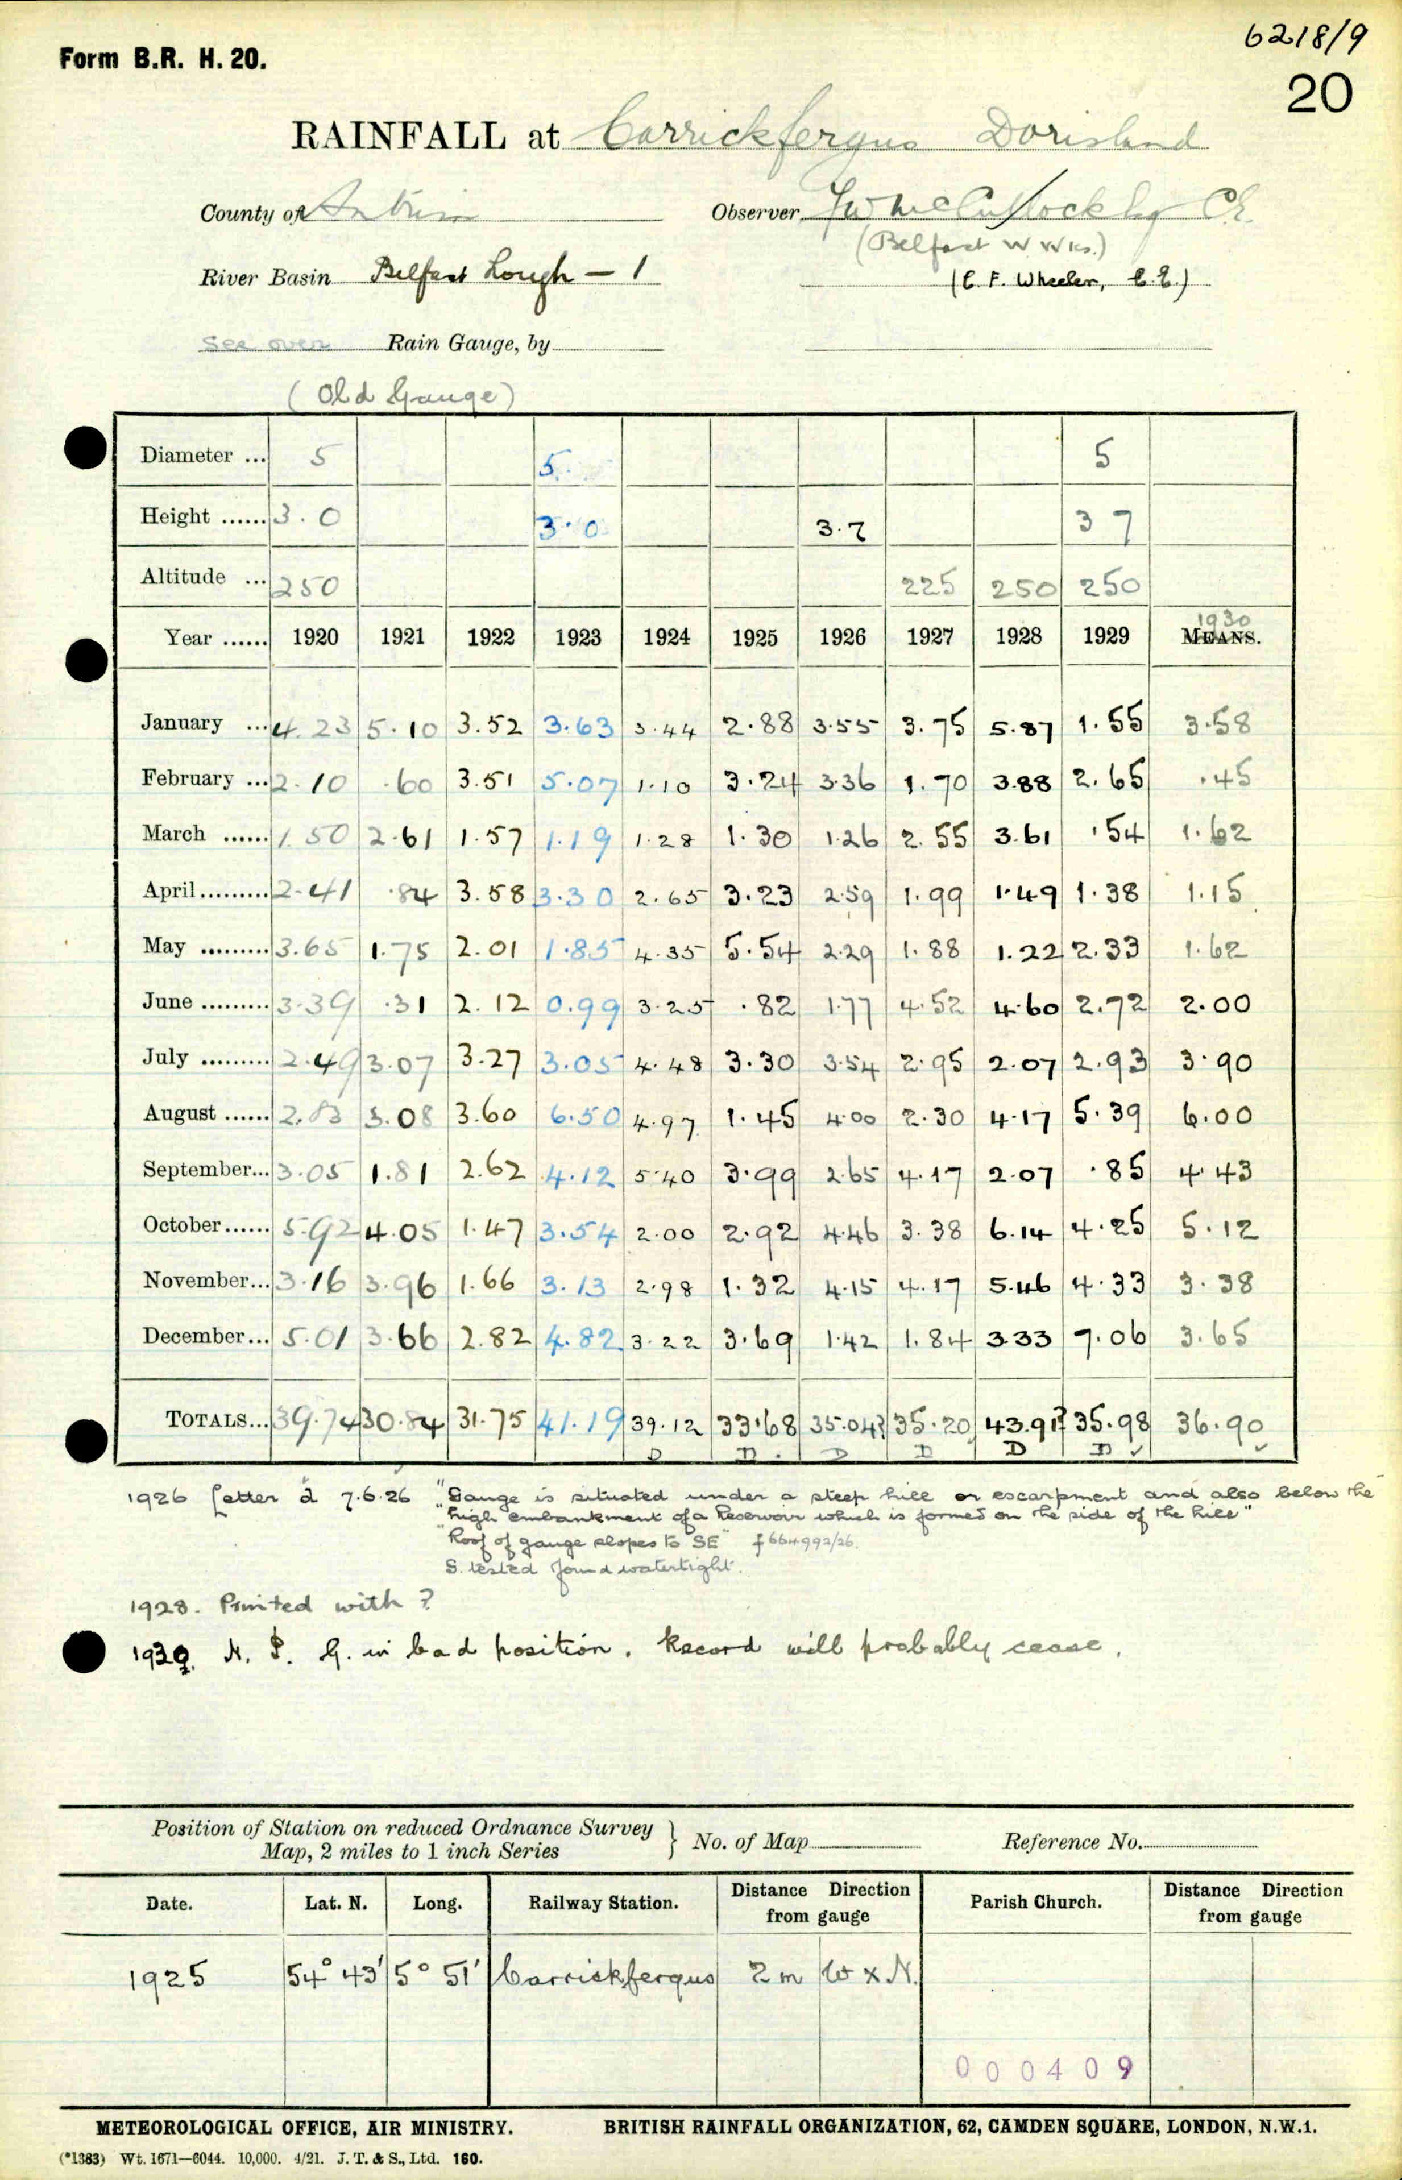 6218/9
Form B.R. H. 20.
20
RAINFALL at Carrickfergus Dorisland
County of Antrim Observer J W McCullock Esq C.E.
(Belfast W Wks.)
River Basin Belfast Lough – 1 (C. F. Wheeler, C.E.)
See over Rain Gauge, by
(Old Gauge)
Diameter ... 5 5. 5
Height ...... 3.0 3.0 3.7 3 7
Altitude ... 250 225 250 250
1930
Year ...... 1920 1921 1922 1923 1924 1925 1926 1927 1928 1929 MEANS.
January ... 4.23 5.10 3.52 3.63 3.44 2.88 3.55 3.75 5.87 1.55 3.58
February ... 2.10 .60 3.51 5.07 1.10 3.24 3.36 1.70 3.88 2.65 .45
March ...... 1.50 2.61 1.57 1.19 1.28 1.30 1.26 2.55 3.61 .54 1.62
April ......... 2.41 .84 3.58 3.30 2.65 3.23 2.59 1.99 1.49 1.38 1.15
May ......... 3.65 1.75 2.01 1.85 4.35 5.54 2.29 1.88 1.22 2.33 1.62
June ......... 3.39 .31 2.12 0.99 3.25 .82 1.77 4.52 4.60 2.72 2.00
July ......... 2.49 3.07 3.27 3.05 4.48 3.30 3.54 2.95 2.07 2.93 3.90
August ...... 2.83 3.08 3.60 6.50 4.97 1.45 4.00 2.30 4.17 5.39 6.00
September... 3.05 1.81 2.62 4.12 5.40 3.99 2.65 4.17 2.07 .85 4.43
October...... 5.92 4.05 1.47 3.54 2.00 2.92 4.46 3.38 6.14 4.25 5.12
November... 3.16 3.96 1.66 3.13 2.98 1.32 4.15 4.17 5.46 4.33 3.38
December... 5.01 3.66 2.82 4.82 3.22 3.69 1.42 1.84 3.33 7.06 3.65
TOTALS... 39.74 30.84 31.75 41.19 39.12 33.68 35.04? 35.20 43.91? 35.98 36.90
D D. D D D D ✓ ✓
1926 Letter d 7.6.26 "Gauge is situated under a steep hill or escarpment and also below the
"high embankment of a Reservoir which is formed on the side of the hill"
"Roof of gauge slopes to SE" f 664992/26.
S. tested found watertight.
1928. Printed with ?
1929. N. P. G. in bad position. Record will probably cease.
Position of Station on reduced Ordnance Survey
Map, 2 miles to 1 inch Series } No. of Map Reference No.
Date. Lat. N. Long. Railway Station. Distance Direction from gauge Parish Church. Distance Direction from gauge
1925 54° 43' 5° 51' Carrickfergus 2 m W x N.
000409
METEOROLOGICAL OFFICE, AIR MINISTRY. BRITISH RAINFALL ORGANIZATION, 62, CAMDEN SQUARE, LONDON, N.W.1.
(*1383) Wt. 1671—6044. 10,000. 4/21. J. T. & S., Ltd. 160.